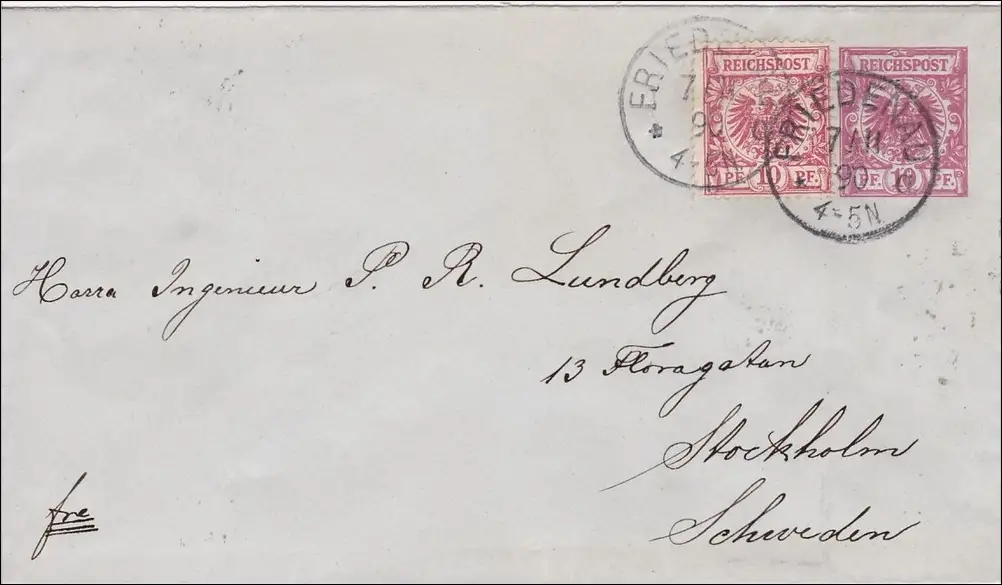 REICHSPOST
10 PF. 10 PF.
REICHSPOST
PF. 10 PF.
FRIEDE
4-5N
FRIEDENAU
90
4-5N
Herrn Ingenieur P. R. Lundberg
13 Floragatan
Stockholm
Schweden
fre